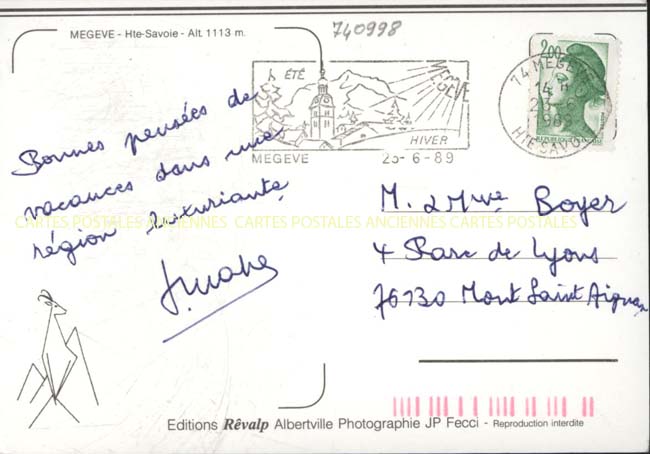 MEGEVE - Hte-Savoie - Alt. 1113 m.
740998
ÉTÉ
MEGEVE
HIVER
MEGEVE 23-6-89
74 MEGEVE
14 H
23-6
1989
HTE SAVOIE
2,00
Bonnes pensées de
vacances dans une
région luxuriante
M. & Mme Boyer
4 Parc de Lyons
76130 Mont Saint Aignan
CARTES POSTALES ANCIENNES CARTES POSTALES ANCIENNES CARTES POSTALES
Editions Rêvalp Albertville Photographie JP Fecci - Reproduction interdite